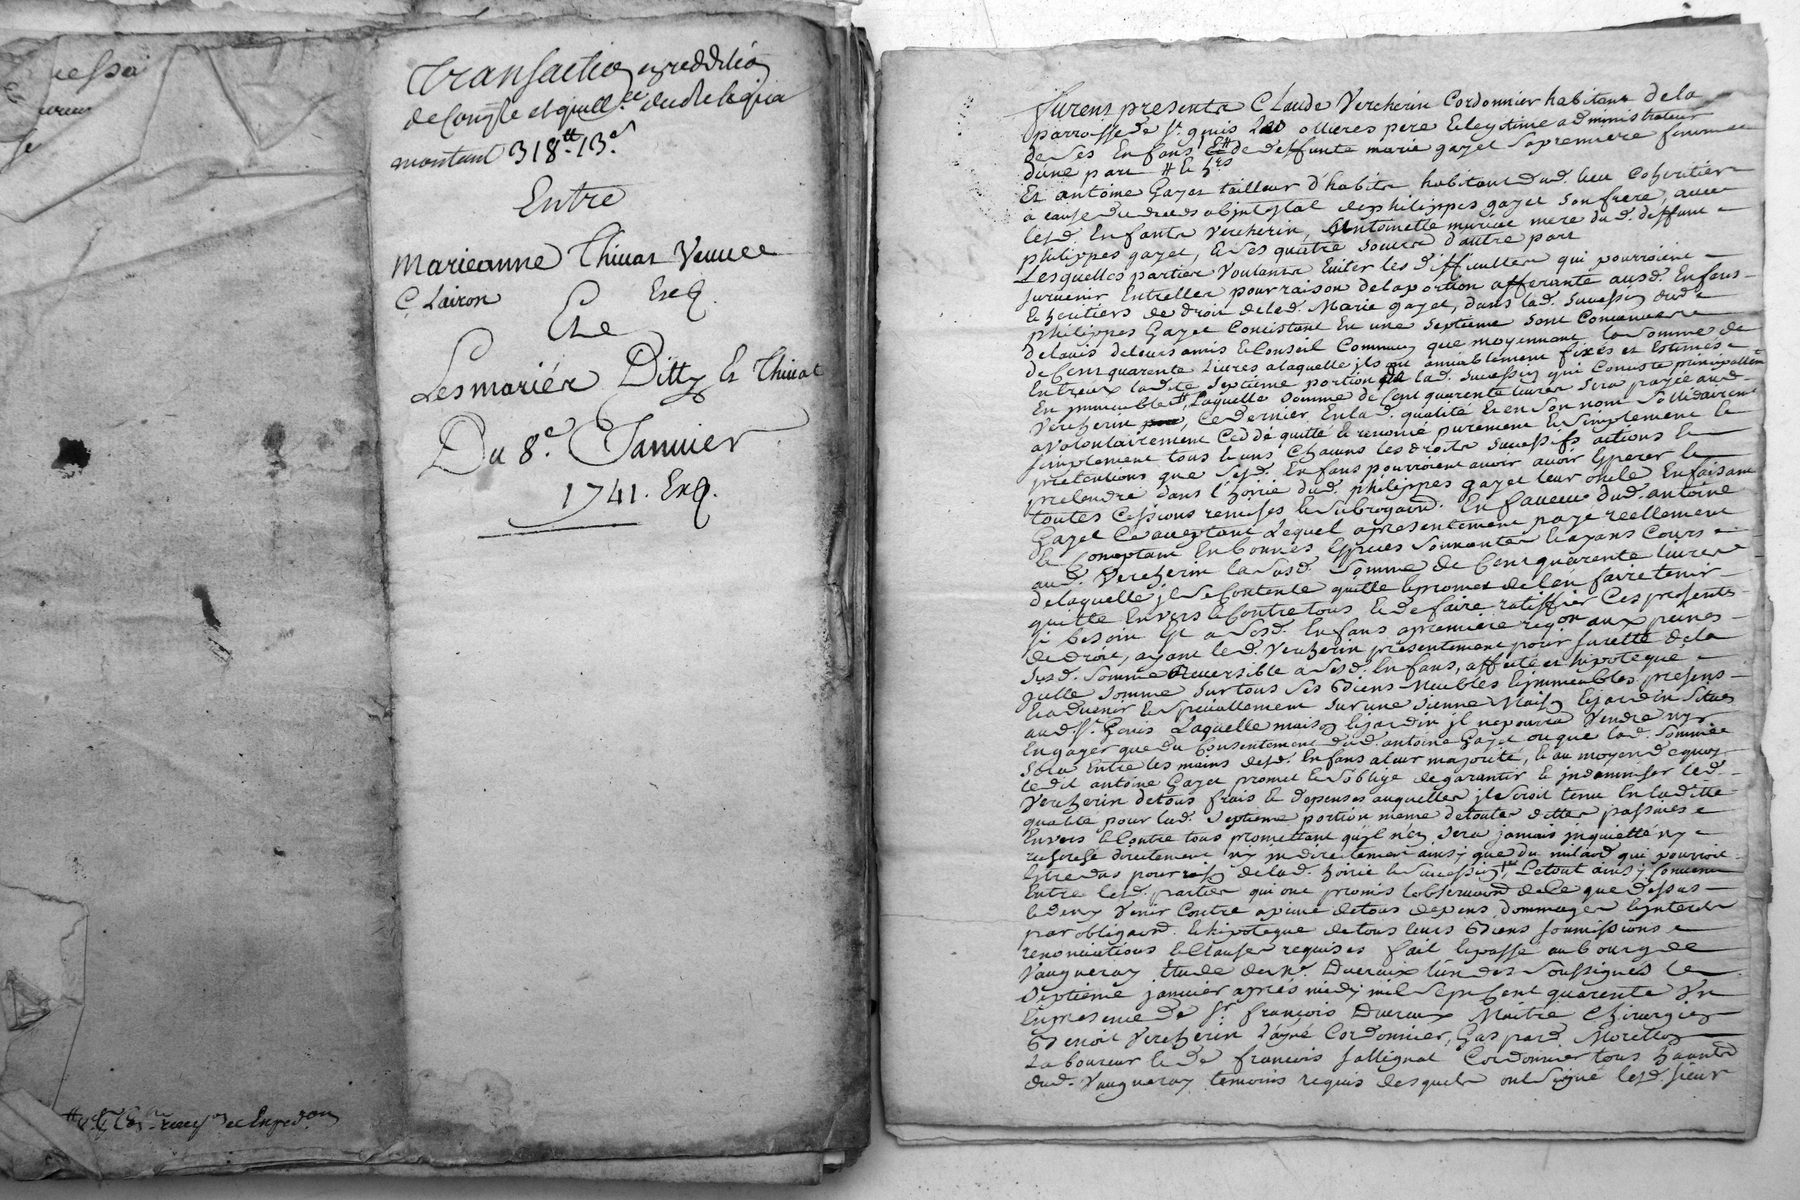 Transaction en reddition
de Compte et quitt.ce du reliqua
montant 318.tt 13.s
Entre
Marieanne Thiuat Veuue
Clairon Exp.
Et Le
Les mariés Ditty Et Thiuat
Du 8.e Januier
1741. Exp.
furent presents Claude Vercherin Cordonnier habitant de la
parroisse de St. Genis Les ollieres pere Et legitime administrateur
de ses Enfans Et de deffunte marie gayet sa premiere femme
d'une part
Et antoine Gayet tailleur d'habits habitant dud. lieu Coheritier
a cause du deceds abintestat de philippes gayet son frere, auec
lesd. Enfants Vercherin, Antoinette mere dud. deffunt
philippes gayet, Et ses quatre soeurs d'autre part
Lesquelles parties Voulants Euiter les difficultes qui pourroient
suruenir Entrelles pour raison de la portion afferante ausd. Enfans
heritiers de droit de lad. Marie gayet, dans lad. succession dud.
philippes Gayet Consistant En une septieme sont Conuenus
de lauis de leurs amis Et Conseil Commun que moyennant la somme de
de Cent quarente Liures a laquelle ils ont amiablement fixés et Estimés
Entreux ladite septieme portion de lad. succession qui Consiste principallement
En immeubles, Laquelle somme de Cent quarente liures sera payée aud.
Vercherin, Ce dernier En lad. qualité Et en son nom sollidairement
a volontairement Ceddé quitté Et renoncé purement Et simplement Et
simplement tous Et uns Chacuns les droits successifs actions Et
pretentions que sesd. Enfans pourroient auoir avoir Esperer Et
pretendre dans l'hoirie dud. philippes gayet leur oncle En faisant
toutes Cessions remises Et subrogations En faueur dud. antoine
Gayet Ce acceptant Lequel a presentement payé reellement
Et Comptant En bonnes Especes sonnantes Et ayans Cours
aud. Vercherin la susd. somme de Cent quarente liures
de laquelle il se Contente quitte Et promet de len faire tenir
quitte Envers Et Contre tous Et de faire ratiffier Ces presentes
si besoin Est a sesd. Enfans a premiere req.on aux peines
de droit, ayant led. Vercherin presentement pour surette de la
susd. somme Reuersible a sesd. Enfans, affecté et hipotequé
jcelle somme sur tous ses Biens Meubles Et immeubles presens
Et aduenir Et speciallement sur une sienne Maison Et jardin Situés
aud. St. Genis Laquelle maison Et jardin il ne pourra Vendre ny
Engager que du Consentement dud. antoine Gayet ou que lad. somme
sera Entre les mains desd. Enfans a leur majorité, Et au moyen de quoy
ledit antoine Gayet promet Et s'oblige de garantir Et indamniser led.
Vercherin de tous frais Et depenses auquelles il seroit tenu En ladite
qualité pour lad. septieme portion meme de toutes dettes passiues
Envers Et Contre tous promettant quil n'en sera jamais inquietté ny
recherché directement ny indirectement ainsy que du milaod qui pourroit
Estre dus pour raison de lad. hoirie Et succession, Le tout ainsy Conuenu
Entre lesd. parties qui ont promis lobseruation de ce que dessus
Et de ny Venir Contre a peine de tous depens dommages Et interets
par obligation Et hipoteque de tous leurs Biens soumissions
renonciations Et Clauses requises fait Et passé au bourg de
Vaugneray Etude de me. Ducreux l'un des soussignés Le
septieme januier apres midy mil sept Cent quarente Un
En presence de sr. françois Ducreux Maitre Chirurgien
Benoit Vercherin l'ayné Cordonnier, Gaspard Morellon
Laboureur Et de francois Cordonnier tous habitants
dud. Vaugneray temoins requis desquels ont signé lesd. sieur